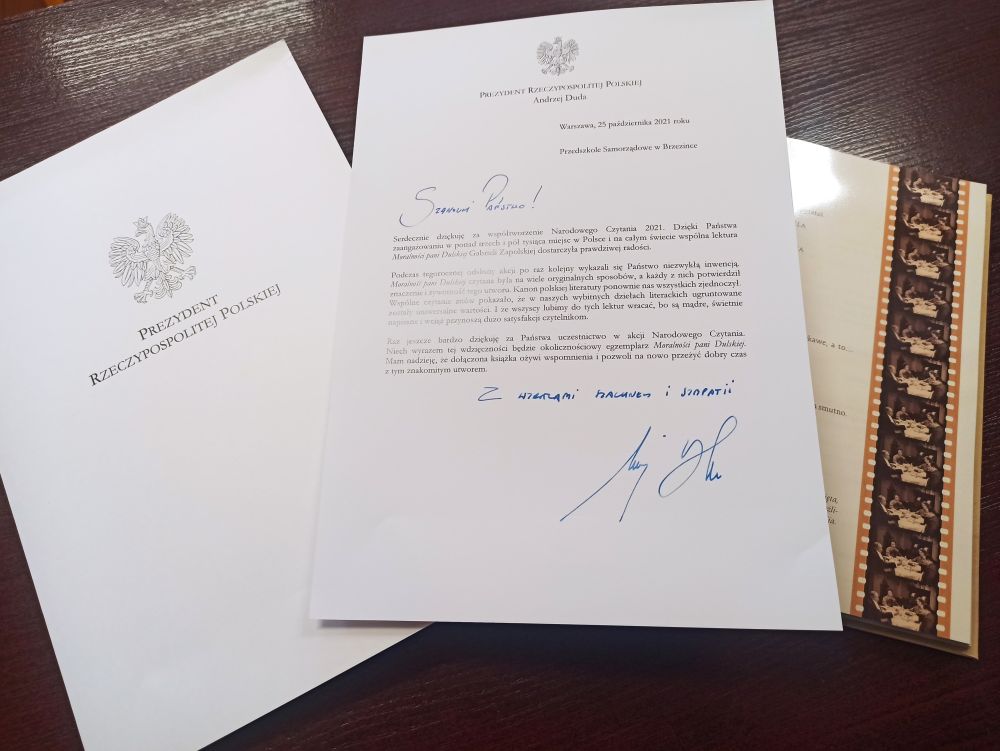 PREZYDENT
RZECZYPOSPOLITEJ POLSKIEJ
PREZYDENT RZECZYPOSPOLITEJ POLSKIEJ
Andrzej Duda
Warszawa, 25 października 2021 roku
Przedszkole Samorządowe w Brzezince
Szanowni Państwo!
Serdecznie dziękuję za współtworzenie Narodowego Czytania 2021. Dzięki Państwa
zaangażowaniu w ponad trzech i pół tysiąca miejsc w Polsce i na całym świecie wspólna lektura
Moralności pani Dulskiej Gabrieli Zapolskiej dostarczyła prawdziwej radości.
Podczas tegorocznej odsłony akcji po raz kolejny wykazali się Państwo niezwykłą inwencją.
Moralność pani Dulskiej czytana była na wiele oryginalnych sposobów, a każdy z nich potwierdził
znaczenie i żywotność tego utworu. Kanon polskiej literatury ponownie nas wszystkich zjednoczył.
Wspólne czytanie znów pokazało, że w naszych wybitnych dziełach literackich ugruntowane
zostały uniwersalne wartości. I że wszyscy lubimy do tych lektur wracać, bo są mądre, świetnie
napisane i wciąż przynoszą dużo satysfakcji czytelnikom.
Raz jeszcze bardzo dziękuję za Państwa uczestnictwo w akcji Narodowego Czytania.
Niech wyrazem tej wdzięczności będzie okolicznościowy egzemplarz Moralności pani Dulskiej.
Mam nadzieję, że dołączona książka ożywi wspomnienia i pozwoli na nowo przeżyć dobry czas
z tym znakomitym utworem.
Z wyrazami szacunku i sympatii
kawe, a to...
smutno.